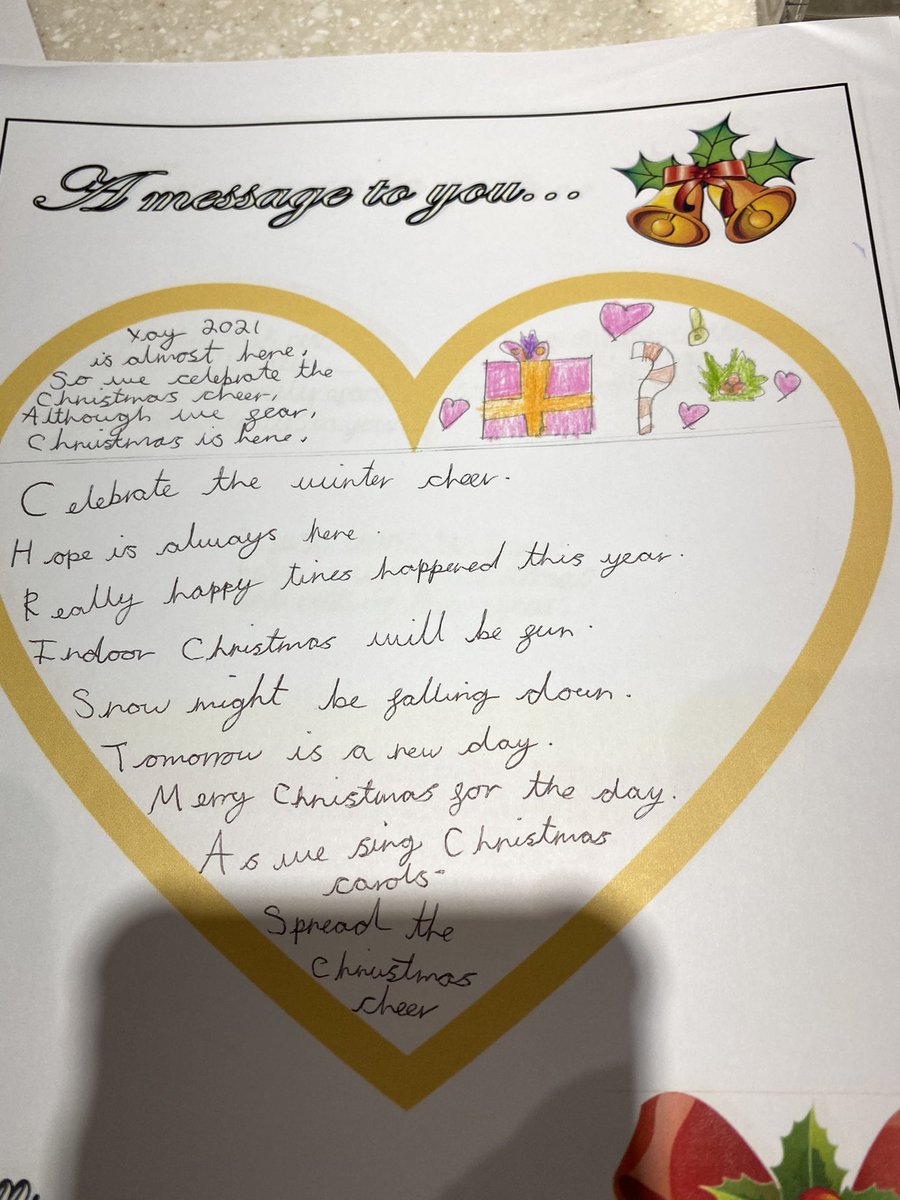 A message to you...
Xay 2021
is almost here,
So we celebrate the
Christmas cheer,
Although we fear,
Christmas is here.
Celebrate the winter cheer.
Hope is always here.
Really happy times happened this year.
Indoor Christmas will be fun.
Snow might be falling down.
Tomorrow is a new day.
Merry Christmas for the day.
As we sing Christmas
carols-
Spread the
Christmas
cheer